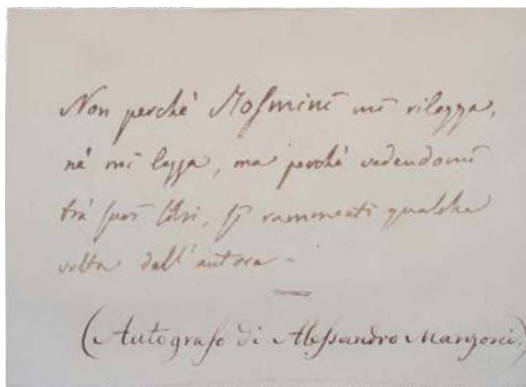 Non perchè Rosmini mi rilegga,
nè mi legga, ma perchè vedendomi
trà suoi libri, si rammenti qualche
volta dell'autore -
(Autografo di Alessandro Manzoni.)